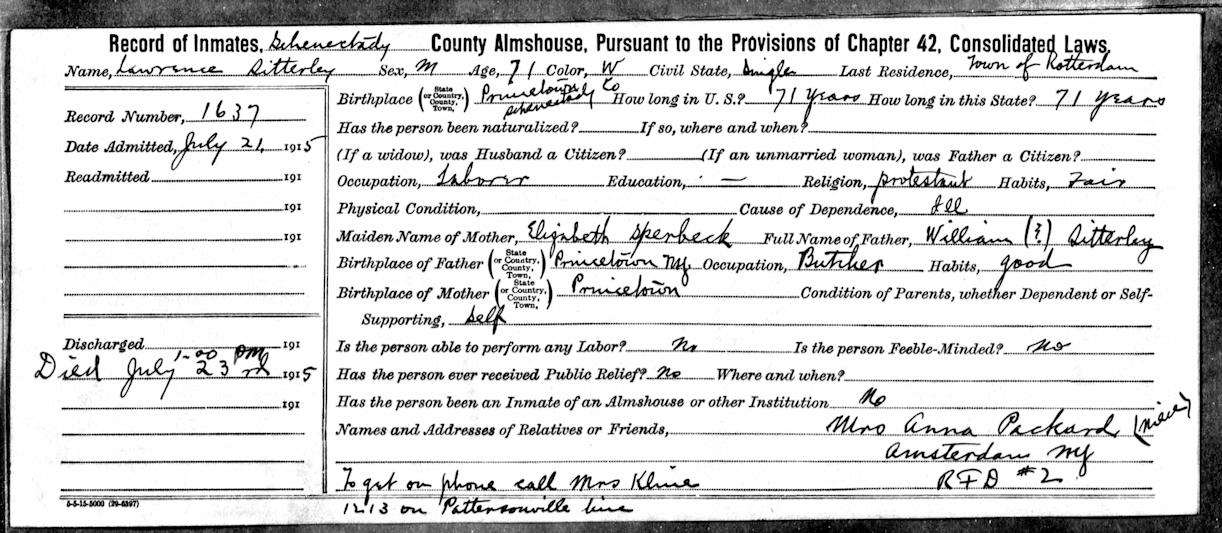 Record of Inmates, Schenectady County Almshouse, Pursuant to the Provisions of Chapter 42, Consolidated Laws.
Name, Lawrence Sitterley Sex, M Age, 71 Color, W Civil State, Single Last Residence, Town of Rotterdam
Record Number, 1637
Date Admitted, July 21, 1915
Readmitted 191
191
191
191
191
Discharged 191
Died July 1-00 PM 23rd 1915
191
191
5-5-15-5000 (29-6397)
Birthplace (State or Country, County, Town,) Princetown Schenectady Co How long in U. S.? 71 years How long in this State? 71 years
Has the person been naturalized? If so, where and when?
(If a widow), was Husband a Citizen? (If an unmarried woman), was Father a Citizen?
Occupation, Laborer Education, — Religion, protestant Habits, Fair
Physical Condition, Cause of Dependence, Ill
Maiden Name of Mother, Elizabeth Sperbeck Full Name of Father, William (?) Sitterley
Birthplace of Father (State or Country, County, Town,) Princetown NY. Occupation, Butcher Habits, good
Birthplace of Mother (State or Country, County, Town,) Princetown Condition of Parents, whether Dependent or Self-
Supporting, Self
Is the person able to perform any Labor? No Is the person Feeble-Minded? No
Has the person ever received Public Relief? No Where and when?
Has the person been an Inmate of an Almshouse or other Institution No
Names and Addresses of Relatives or Friends, Mrs Anna Packard (niece)
Amsterdam NY
RFD #2
To get on phone call Mrs Kline
1213 on Pattersonville line